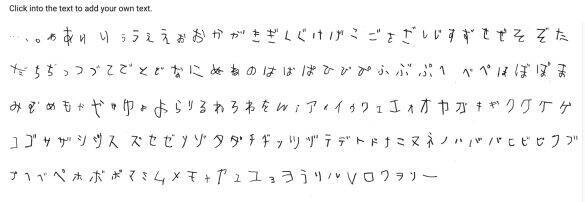 Click into the text to add your own text.
… 、。ぁあぃいぅうぇえぉおかがきぎくぐけげこごさざしじすずせぜそぞた
だちぢっつづてでとどなにぬねのはばぱひびぴふぶぷへべぺほぼぽま
みむめもゃやゅゆょよらりるれろわをんァィイゥウェエォオカガキギクグケゲ
コゴサザシジスズセゼソゾタダチヂッツヅテデトドナニヌネノハバパヒビピフブ
プヘベペホボポマミムメモャヤュユョヨラリルレロワヲンー